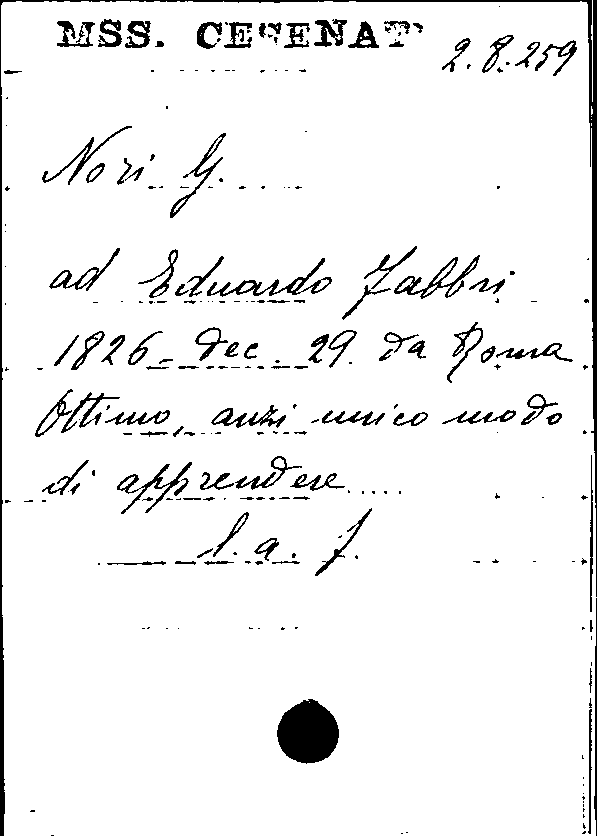 MSS. CESENAT
2.8.259
Nori G.
ad Eduardo Fabbri
1826 - dec. 29. da Roma
Ottimo, anzi unico modo
di apprendere....
l. a. f.